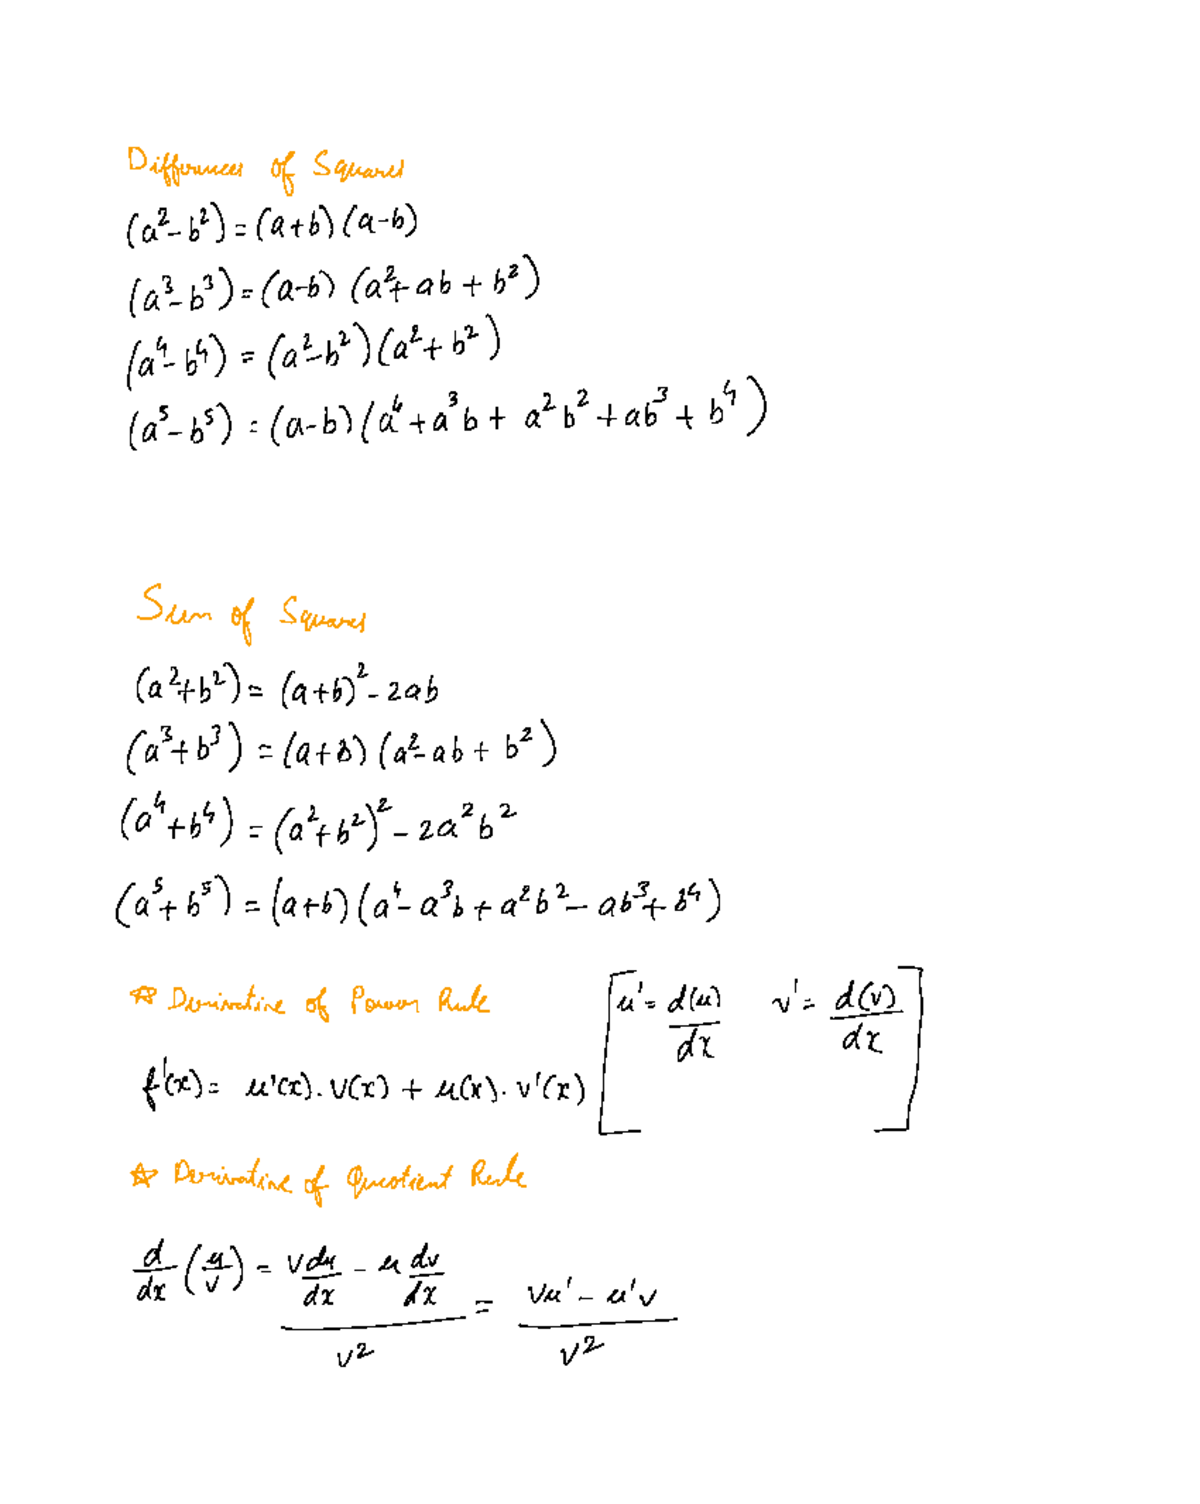 Differences of Squares
(a²-b²)=(a+b)(a-b)
(a³-b³)=(a-b) (a²+ab+b²)
(a⁴-b⁴) = (a²-b²)(a²+b²)
(a⁵-b⁵) = (a-b)(a⁴+a³b+a²b²+ab³+b⁴)
Sum of Squares
(a²+b²)= (a+b)²-2ab
(a³+b³) = (a+b) (a²-ab+b²)
(a⁴+b⁴) = (a²+b²)²-2a²b²
(a⁵+b⁵) = (a+b)(a⁴-a³b+a²b²-ab³+b⁴)
☆ Derivative of Power Rule [u'= d(u)/dx v'= d(v)/dx]
f'(x)= u'(x).v(x) + u(x).v'(x)
☆ Derivative of Quotient Rule
d/dx (u/v) = (v du/dx - u dv/dx)/v² = (vu' - u'v)/v²